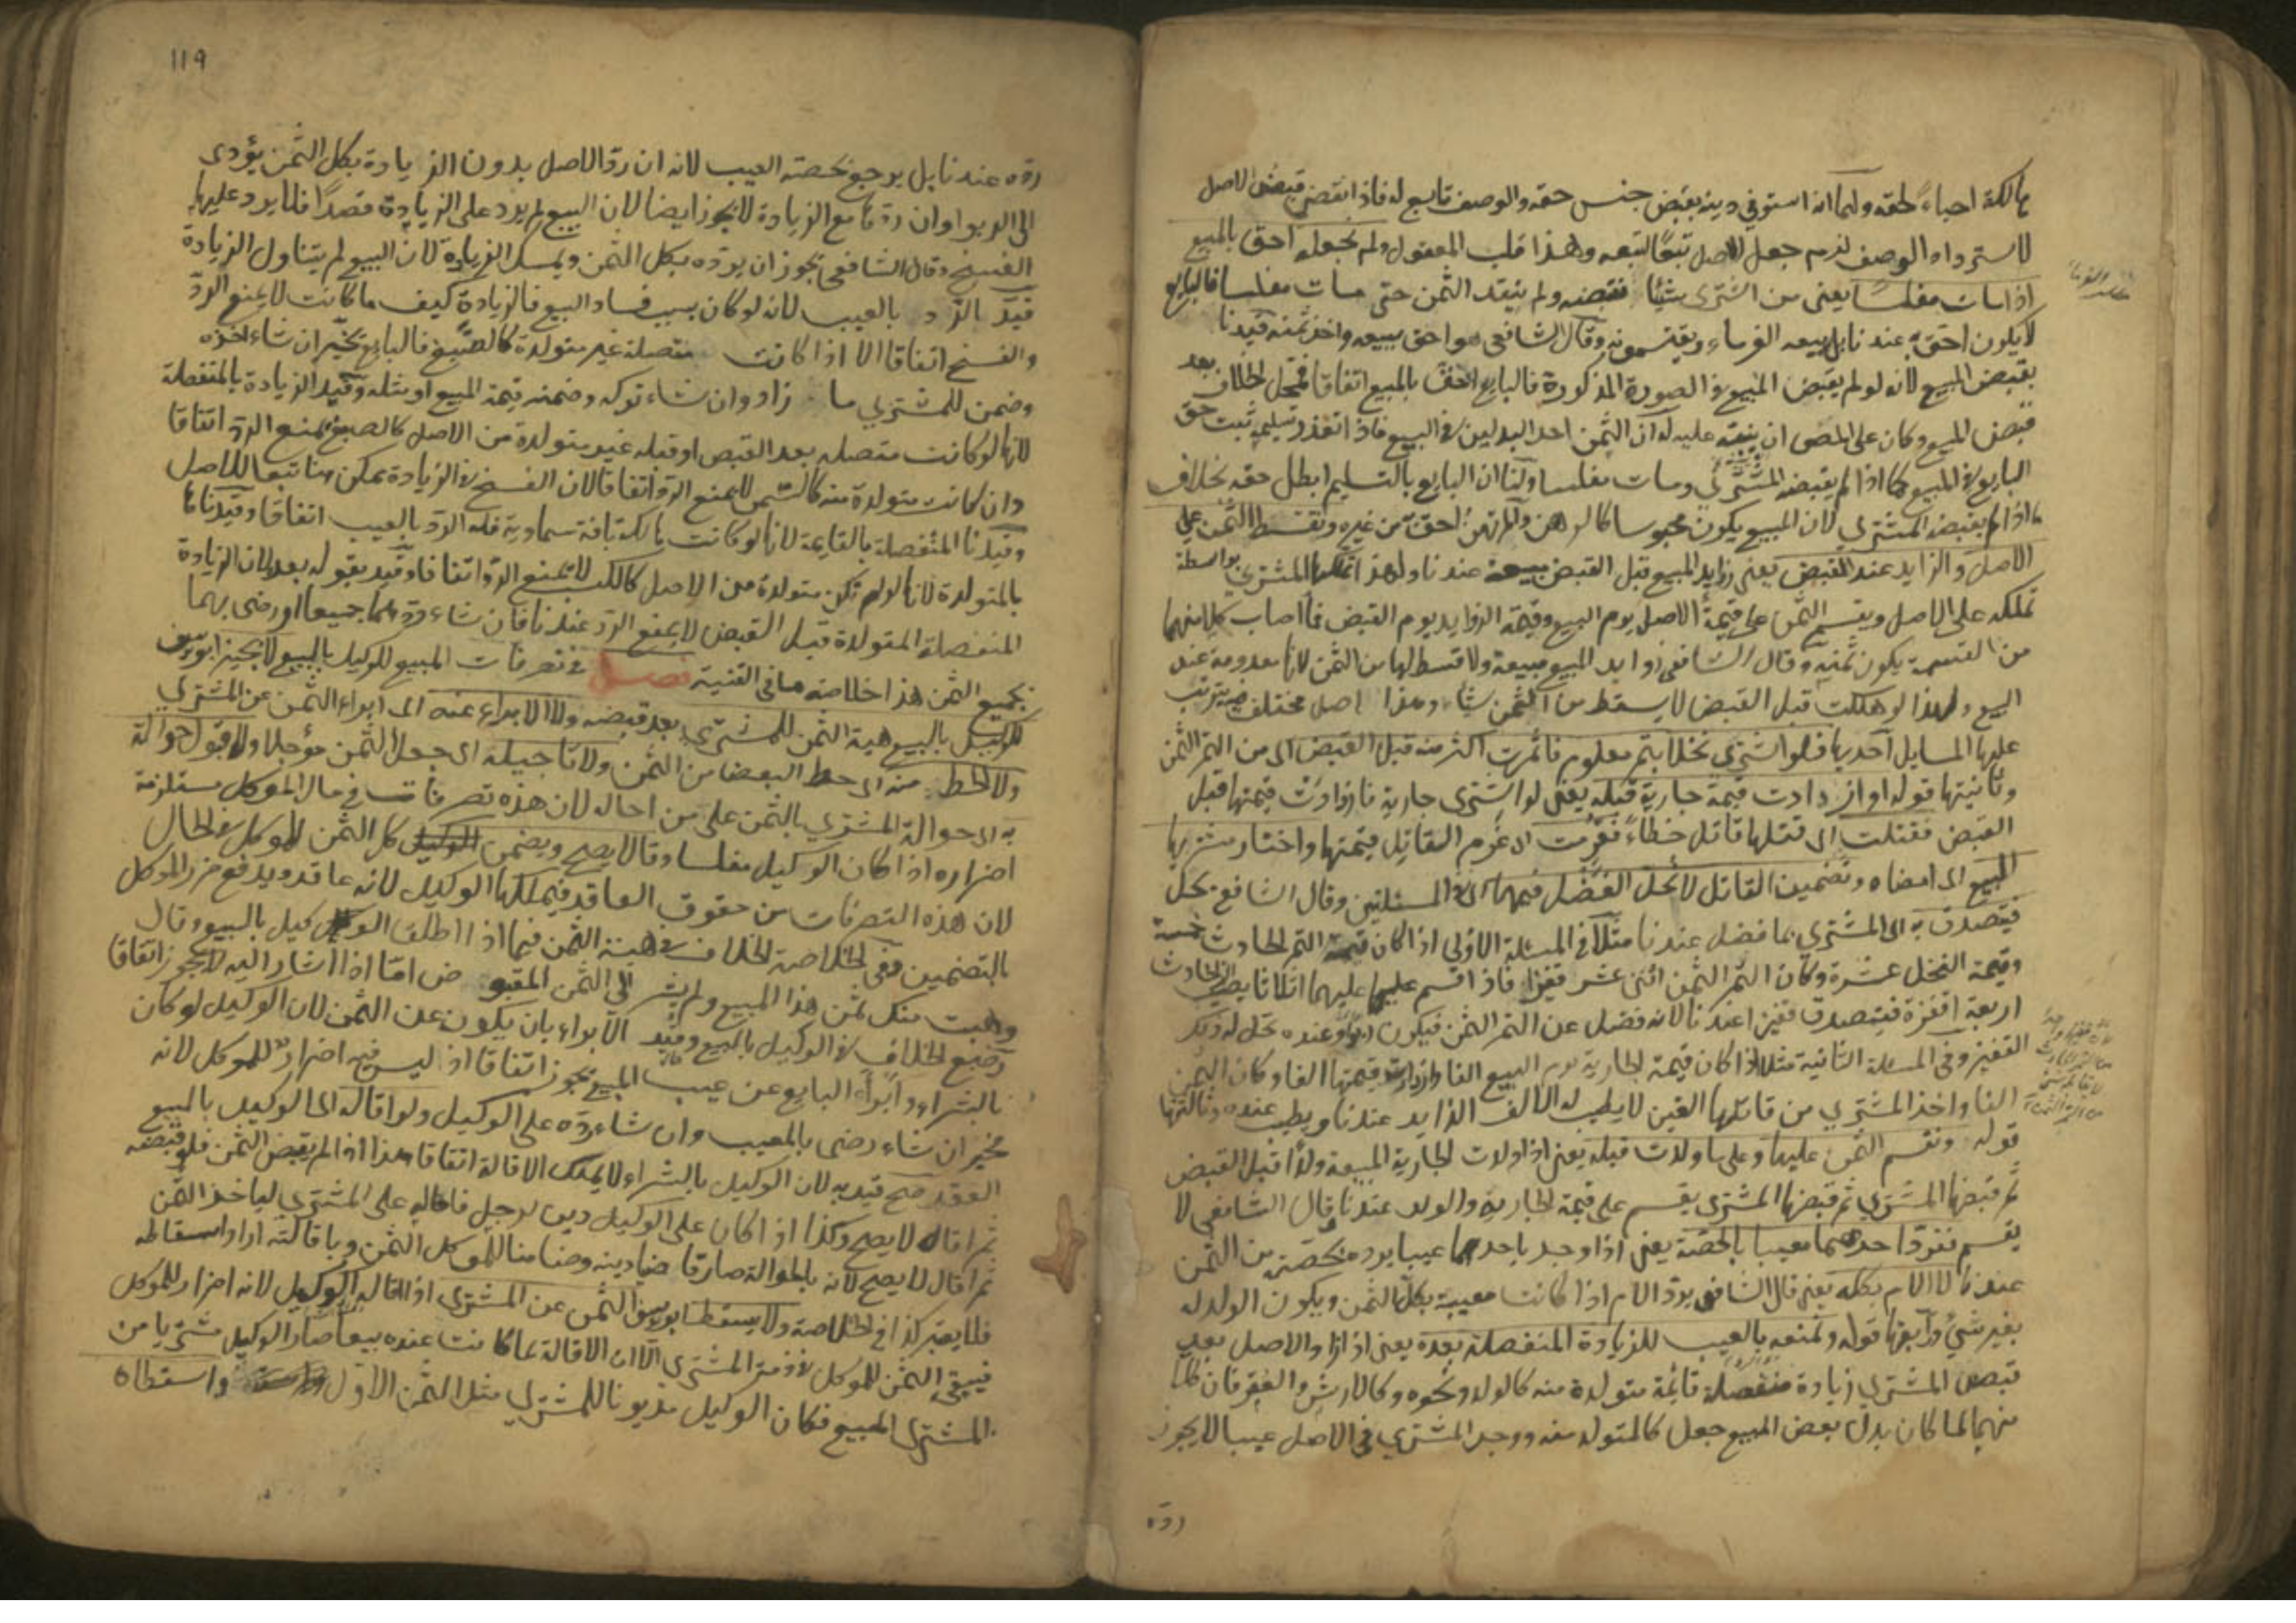 هالكة احياءً لحقه ولهما انه استوفي دينه بقبض جنس حقه والوصف تابع له فاذا انقضي قبض الاصل
لاسترداد الوصف لزم جعل الاصل تبعًا لتبعه وهذا قلب المعقول ولم نجعله احق بالمبيع
اذا مات مفلسًا يعنى من اشترى شيئًا فقبضه ولم ينقد الثمن حتى مات مفلسا فالبايع
لا يكون احق به عندنا بل يبيعه الغرماء ويقتسمونه وقال الشافعى هو احق ببيعه واخذ ثمنه قيدنا
بقبض المبيع لانه لو لم يقبض المبيع فى الصورة المذكورة فالبايع احق بالمبيع اتفاقا فمحل الخلاف بعد
قبض المبيع وكان على المص ان ينبه عليه له ان الثمن احد البدلين فى البيع فاذا تعذر تسليمه ثبت حق
البايع فى المبيع كما اذا لم يقبضه المشترى ومات مفلسا ولنا ان البايع بالتسليم ابطل حقه بخلاف
ما اذا لم يقبضه المشتري لان المبيع يكون محبوسا كالرهن والمرتهن احق به من غيره ونقسط الثمن على
الاصل والزايد عند القبض يعنى زوايد المبيع قبل القبض مبيعة عندنا ولهذا تملكها المشتري بواسطة
تملكه على الاصل ويقسم الثمن على قيمة الاصل يوم البيع وقيمة الزوايد يوم القبض فما اصاب كلا منهما
من القسمة يكون ثمنه وقال الشافعى زوايد المبيع مبيعة ولا قسط لها من الثمن لانها معدومة عند
البيع ولهذا لو هلكت قبل القبض لا يسقط من الثمن شئ وهذا اصل مختلف فيه يترتب
عليها المسايل احديها فلو اشترى نخلا بتمر معلوم فاثمرت اكثر منه قبل القبض اى من التمر الثمن
وثانيتها قوله او ازدادت قيمة جارية قبله يعنى لو اشترى جارية فازدادت قيمتها قبل
القبض فقتلت اى قتلها قاتل خطاءً فغرمت اى غرم القاتل قيمتها واختار مشتريها
المبيع اى امضاه وتضمين القاتل لا نحل الفضل فيهما اى فى المسئلتين وقال الشافعى يحل
فيتصدق به اى المشتري بما فضل عندنا مثلا فى المسئلة الاولى اذا كان قيمة التمر الحادث خمسة
وقيمة النخل عشرة وكان التمر الثمن اثنى عشر قفيزا فاذا اقسم عليهما اثلاثا يصيب الحادث
اربعة اقفزة فيتصدق قفيزا عندنا لانه فضل عن التمر الثمن فيكون ربوًا وعنده تحل له ذلك
القفيز وفى المسئلة الثانية مثلا اذا كان قيمة الجارية يوم البيع الفا وازدادت قيمتها الفا وكان الثمن
الفا واخذ المشتري من قاتلها الفين لا يطيب له الالف الزايد عندنا ويطيب عنده وثالثتها
قوله ونقسم الثمن عليها وعلى ما ولدت قبله يعنى اذا ولدت الجارية المبيعة ولدًا قبل القبض
ثم قبضها المشتري يقسم على قيمة الجارية والولد عندنا وقال الشافعى لا
يقسم فنرد احدهما معيبا بالحصة يعنى اذا وجد باحدهما عيبا يرده بحصته من الثمن
عندنا لا الام بكله يعنى قال الشافعى يرد الام اذا كانت معيبة بكل الثمن ويكون الولد له
بغير شئ ورابعتها قوله ونمنعه بالعيب للزيادة المنفصلة بعده يعنى اذا زاد الاصل بعد
قبض المشتري زيادة منفصلة قائمة متولدة منه كالولد ونحوه وكالارش والعقر فان كلا
منهما لما كان بدل بعض المبيع جعل كالمتولد منه ووجد المشتري فى الاصل عيبا لا يجوز
رده
١١٩
رده عندنا بل يرجع بحصته العيب لانه ان رد الاصل بدون الزيادة بكل الثمن يؤدى
الى الربوا وان ردها مع الزيادة لا يجوز ايضا لان البيع لم يرد على الزيادة قصدًا فلا يرد عليها
الفسخ وقال الشافعى يجوز ان يرده بكل الثمن ويمسك الزيادة لان البيع لم يتناول الزيادة
قيد الرد بالعيب لانه لو كان بسبب فساد البيع فالزيادة كيف ما كانت لا يمنع الرد
والفسخ اتفاقا الا اذا كانت متصلة غير متولدة كالصبغ فالبايع يخير ان شاء اخذه
وضمن للمشتري ما زاد وان شاء تركه وضمنه قيمة المبيع او مثله وقيد الزيادة بالمنفصلة
لانها لو كانت متصلة بعد القبض او قبله غير متولدة من الاصل كالصبغ يمنع الرد اتفاقا
وان كانت متولدة منه كالسمن لا يمنع الرد اتفاقا لان الفسخ فى الزيادة يمكن هنا تبعا للاصل
وقيدنا المنفصلة بالقايمة لانها لو كانت هالكة بافة سماوية فله الرد بالعيب اتفاقا وقيدناها
بالمتولدة لانها لو لم تكن متولدة من الاصل كالكسب لا يمنع الرد اتفاقا وقيد بقوله بعده لان الزيادة
المنفصلة المتولدة قبل القبض لا يمنع الرد عندنا فان شاء ردهما جميعا او رضى بهما
بجميع الثمن هذا خلاصة ما فى القنية فصل فى تصرفات المبيع للوكيل بالبيع لا يجيز ابو يوسف
للوكيل بالبيع هبة الثمن للمشتري بعد قبضه ولا الابراء عنه اى ابراء الثمن عن المشتري
ولا الحط منه اى حط البعض من الثمن ولا تاجيله اى جعل الثمن مؤجلا ولا قبول حوالة
به اى حوالة المشتري بالثمن على من احاله لان هذه تصرفات فى مال الموكل مستلزمة
اضراره اذا كان الوكيل مفلسا وقالا يصح ويضمن الوكيل كل الثمن للموكل فى الحال
لان هذه التصرفات من حقوق العاقد فيملكها الوكيل لانه عاقد ويدفع ضرر الموكل
بالتضمين ففى الخلاصة الخلاف فى هبة الثمن فيما اذا اطلق الوكيل بالبيع وقال
وهبت منك ثمن هذا المبيع ولم يشر الى الثمن المقبوض اما اذا اشار اليه لا يجوز اتفاقا
وضع الخلاف فى الوكيل بالبيع وقيد الابراء بان يكون عن الثمن لان الوكيل لو كان
بالشراء وابرأ البايع عن عيب المبيع يجوز اتفاقا اذ ليس فيه اضرار للموكل لانه
مخير ان شاء رضى بالمعيب وان شاء رده على الوكيل ولو اقاله اى الوكيل بالمبيع
العقد صح قيد به لان الوكيل بالشراء لا يملك الاقالة اتفاقا هذا اذا لم يقبض الثمن فلو قبضه
ثم اقاله لا يصح وكذا اذا كان على الوكيل دين لرجل فاحاله على المشتري لياخذ الثمن
ثم اقال لا يصح لانه بالحوالة صار قاضيا دينه وضامنا للموكل الثمن وباقالته اراد اسقاطه
فلا يعتبر كذا فى الخلاصة ولا يسقط ابو يوسف الثمن عن المشتري اذا اقاله الوكيل لانه اضرار للموكل
فيبقى الثمن للموكل فى ذمة المشتري الا ان الاقالة لما كانت عنده بيعا صار الوكيل مشتريا من
المشتري المبيع فكان الوكيل مديونا للمشتري مثل الثمن الاول واسقطاه